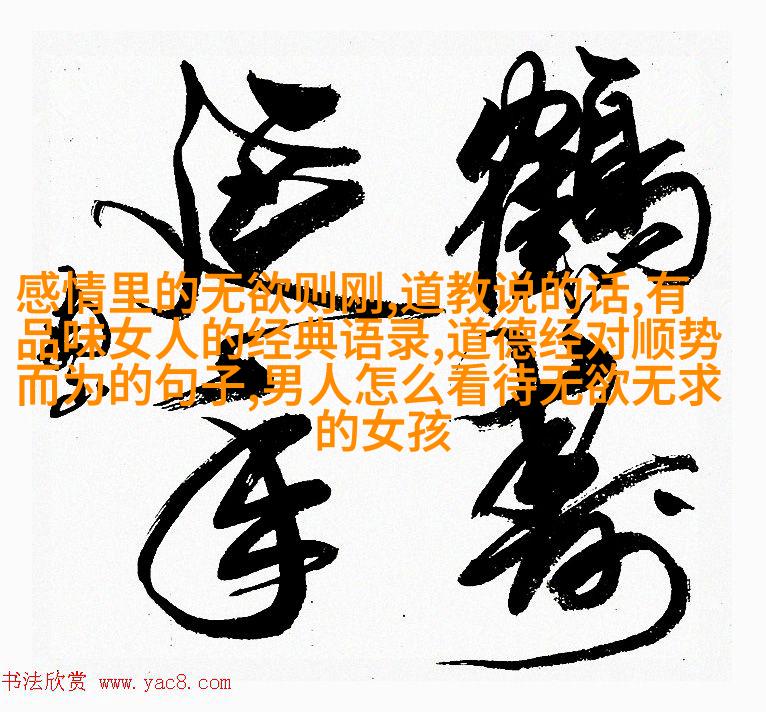 鶴寿
延年
感情里的无欲则刚,道教说的话,有
品味女人的经典语录,道德经对顺势
而为的句子,男人怎么看待无欲无求
的女孩
书法欣赏 www.yac8.com